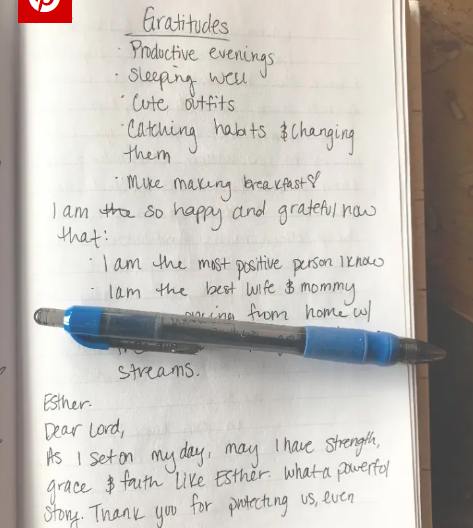 Gratitudes
· Productive evenings
· Sleeping well
· Cute outfits
· Catching habits & changing
them
· Mike making breakfast♡
I am the so happy and grateful now
that:
· I am the most positive person I know
· I am the best wife & mommy
from home w/
streams.
Esther.
Dear Lord,
As I set on my day, may I have strength,
grace & faith like Esther. What a powerful
story. Thank you for protecting us, even